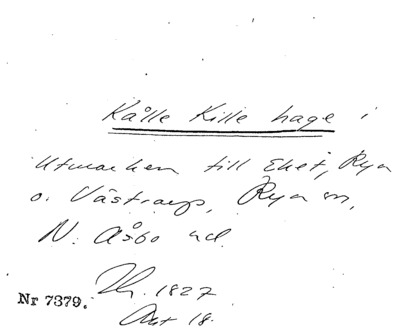 Kålle Kille hage i
Utmarken till Eket, Rya
o. Västraryp, Rya sn,
N. Åsbo hd.
1827
Nr 7379.
Akt 18.